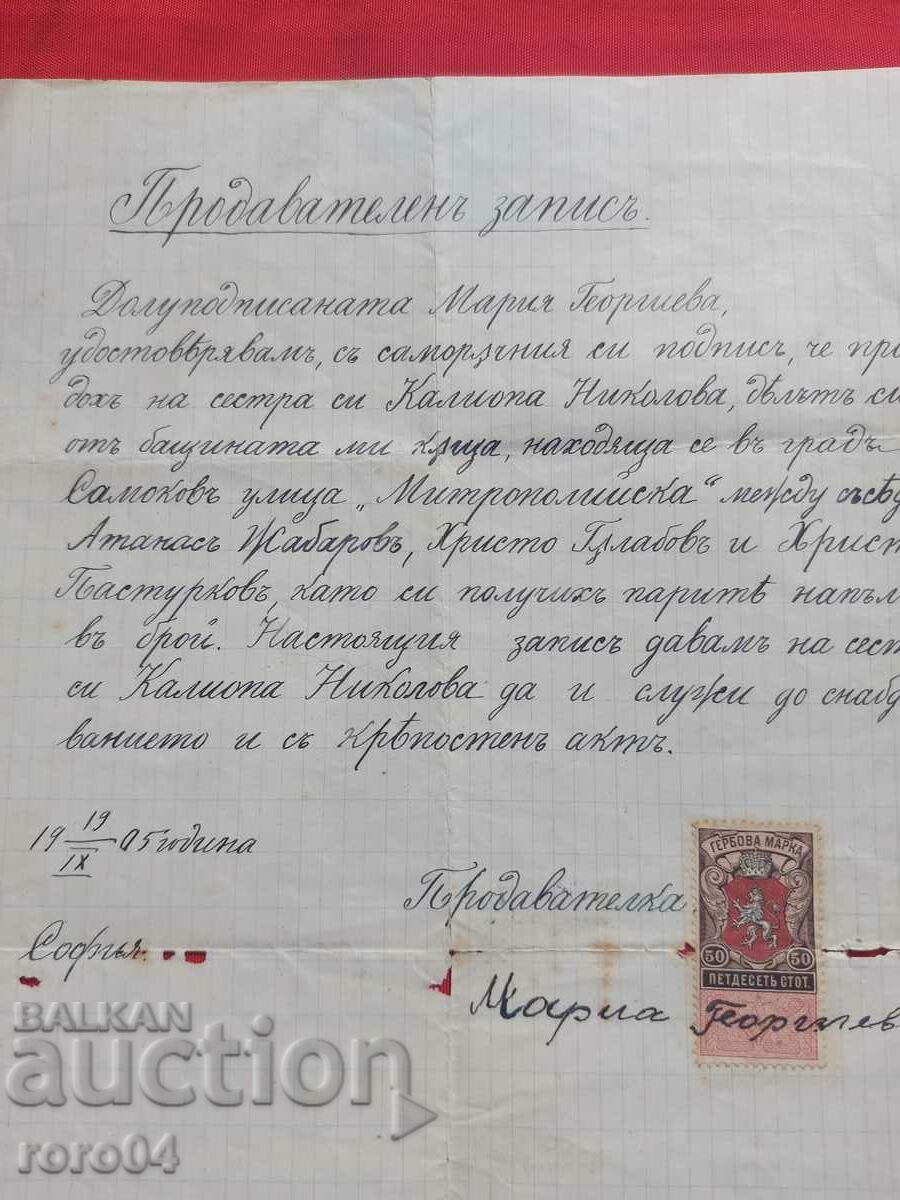 Продавателенъ записъ.
Долуподписаната Мария Георгиева,
удостовѣрявамъ, съ саморѫчния си подписъ, че про
дохъ на сестра си Калиопа Николова, дѣлътъ си
отъ бащината ми кѫща, находяща се въ градъ
Самоковъ улица „Митрополийска“ между съсѣд
Атанасъ Жабаровъ, Христо Гѫлабовъ и Христ
Пастурковъ, като си получихъ паритѣ напъл
въ брой. Настоящия записъ давамъ на сест
си Калиопа Николова да и служи до снабд
ванието и съ крѣпостенъ актъ.
19 19/IX 05 година
Продавателка
София
Мариа Георгиев
ГЕРБОВА МАРКА
50 50
ПЕТДЕСЕТЬ СТОТ.
BALKAN
auction
roro04